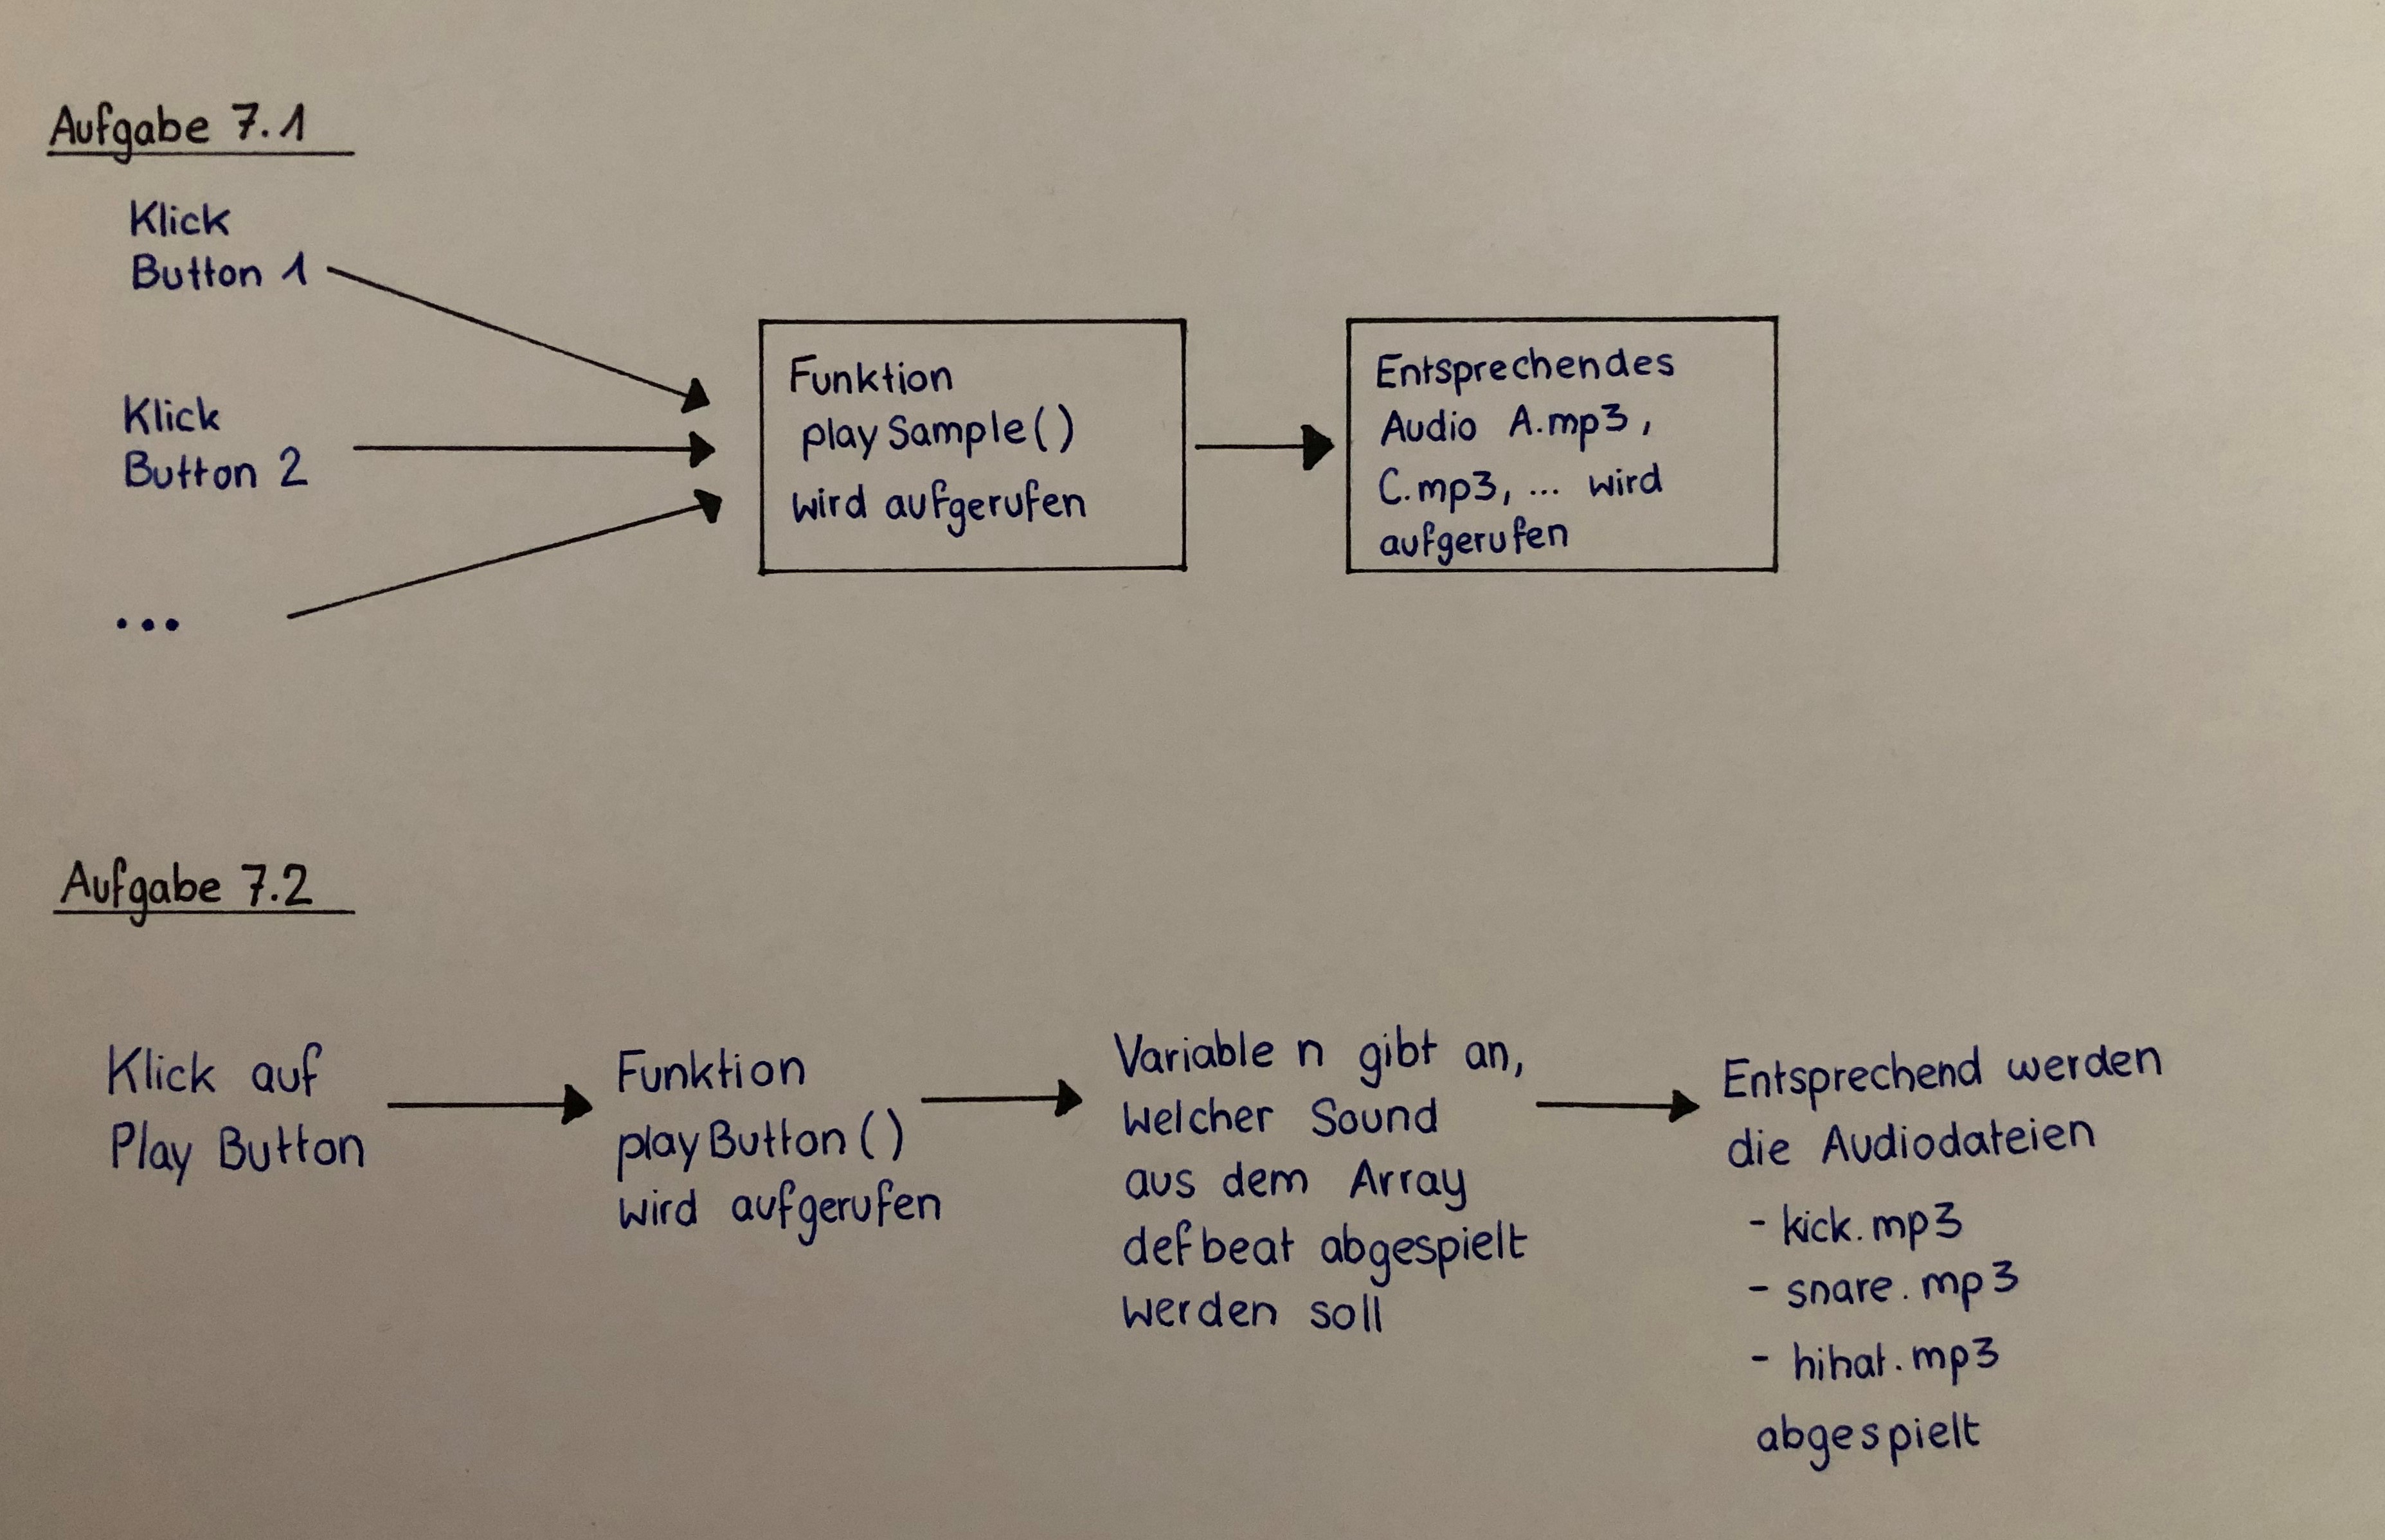 Aufgabe 7.1
Klick
Button 1
Klick
Button 2
...
Funktion
playSample()
wird aufgerufen
Entsprechendes
Audio A.mp3,
C.mp3, ... wird
aufgerufen
Aufgabe 7.2
Klick auf
Play Button
Funktion
playButton()
wird aufgerufen
Variable n gibt an,
welcher Sound
aus dem Array
defbeat abgespielt
werden soll
Entsprechend werden
die Audiodateien
- kick.mp3
- snare.mp3
- hihat.mp3
abgespielt